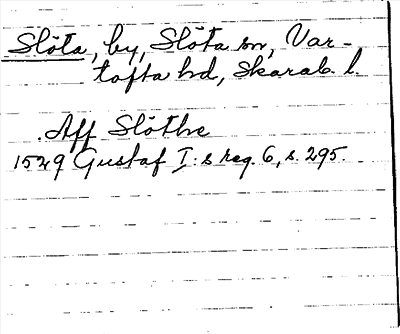 Slöta, by, Slöta sn, Var-
tofta hd, Skarab. l.
Aff Slöthe
1529 Gustaf I:s reg. 6, s. 295.